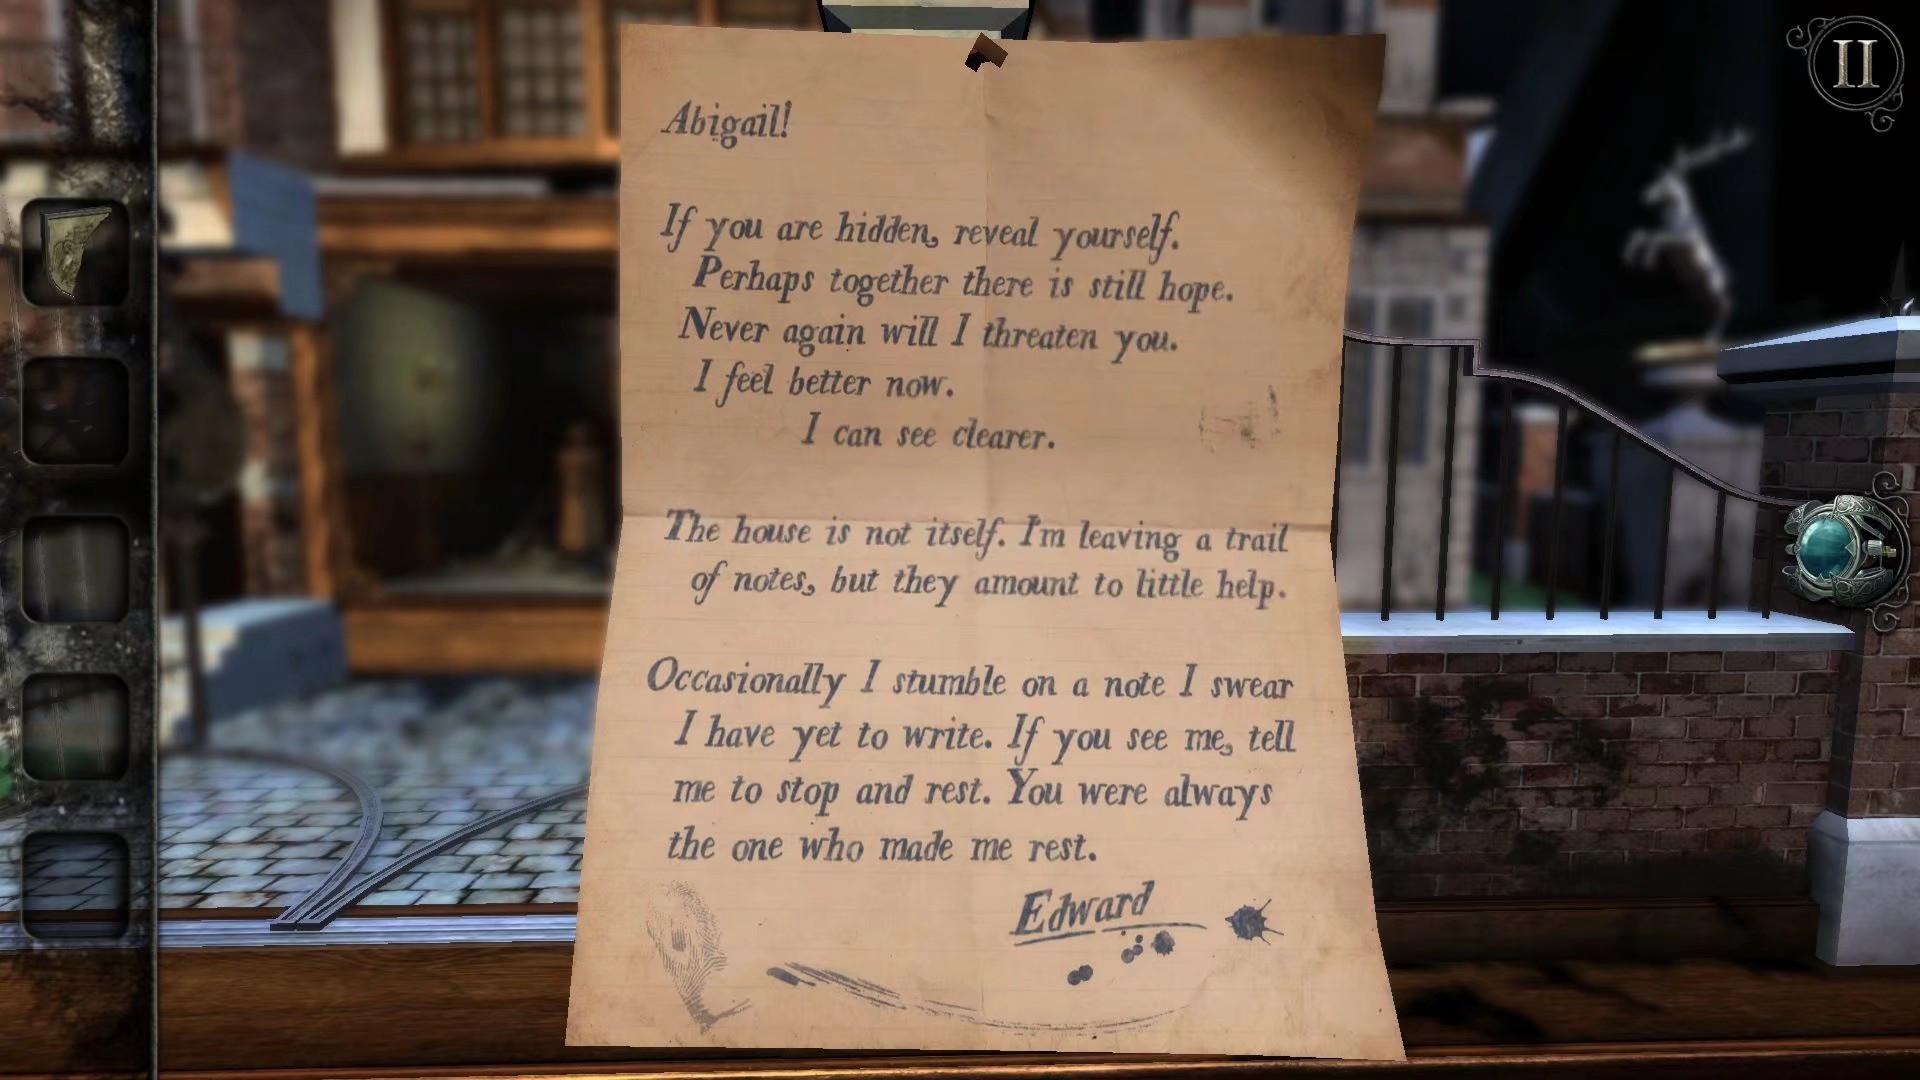 II
Abigail!
If you are hidden, reveal yourself.
Perhaps together there is still hope.
Never again will I threaten you.
I feel better now.
I can see clearer.
The house is not itself. I'm leaving a trail
of notes, but they amount to little help.
Occasionally I stumble on a note I swear
I have yet to write. If you see me, tell
me to stop and rest. You were always
the one who made me rest.
Edward